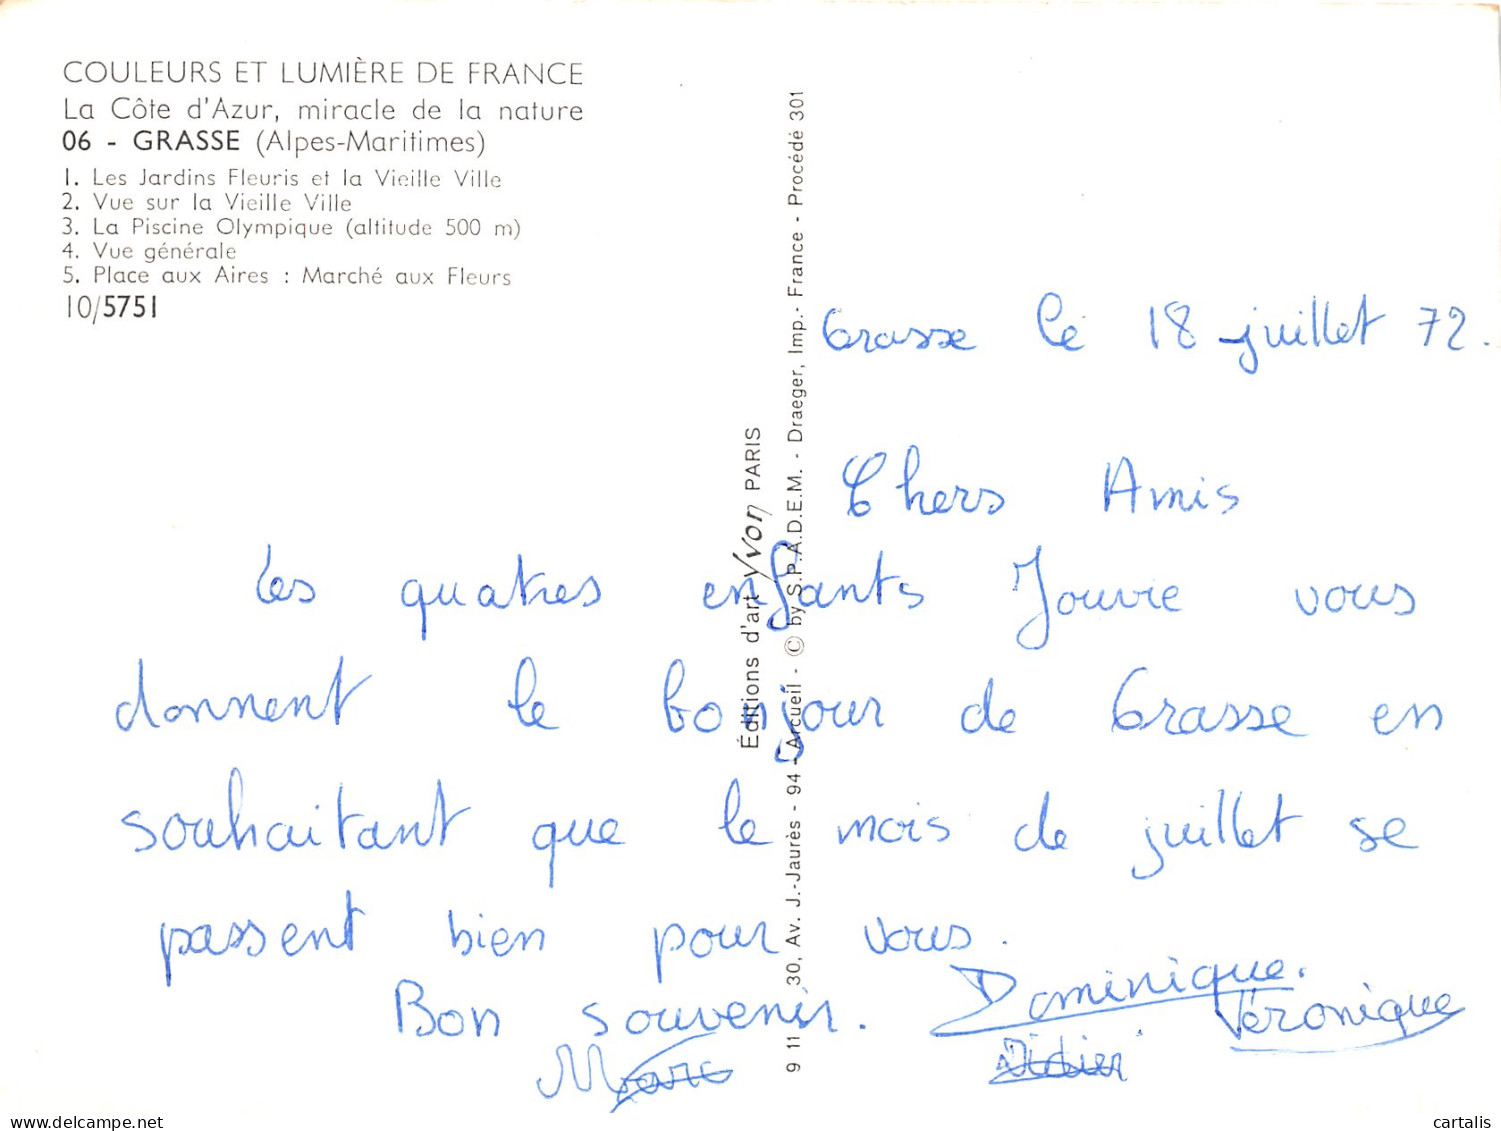 COULEURS ET LUMIÈRE DE FRANCE
La Côte d'Azur, miracle de la nature
06 - GRASSE (Alpes-Maritimes)
1. Les Jardins Fleuris et la Vieille Ville
2. Vue sur la Vieille Ville
3. La Piscine Olympique (altitude 500 m)
4. Vue générale
5. Place aux Aires : Marché aux Fleurs
10/5751
Éditions d'art Yvon PARIS
9 11 30, Av. J.-Jaurès - 94 - Arcueil - © by S.P.A.D.E.M. - Draeger, Imp.- France - Procédé 301
Grasse le 18 juillet 72.
Chers Amis
Les quatres enfants Jouvie vous
donnent le bonjour de Grasse en
souhaitant que le mois de juillet se
passent bien pour vous.
Bon souvenir. Dominique. Véronique
Marc Didier
delcampe.net
Cartalis